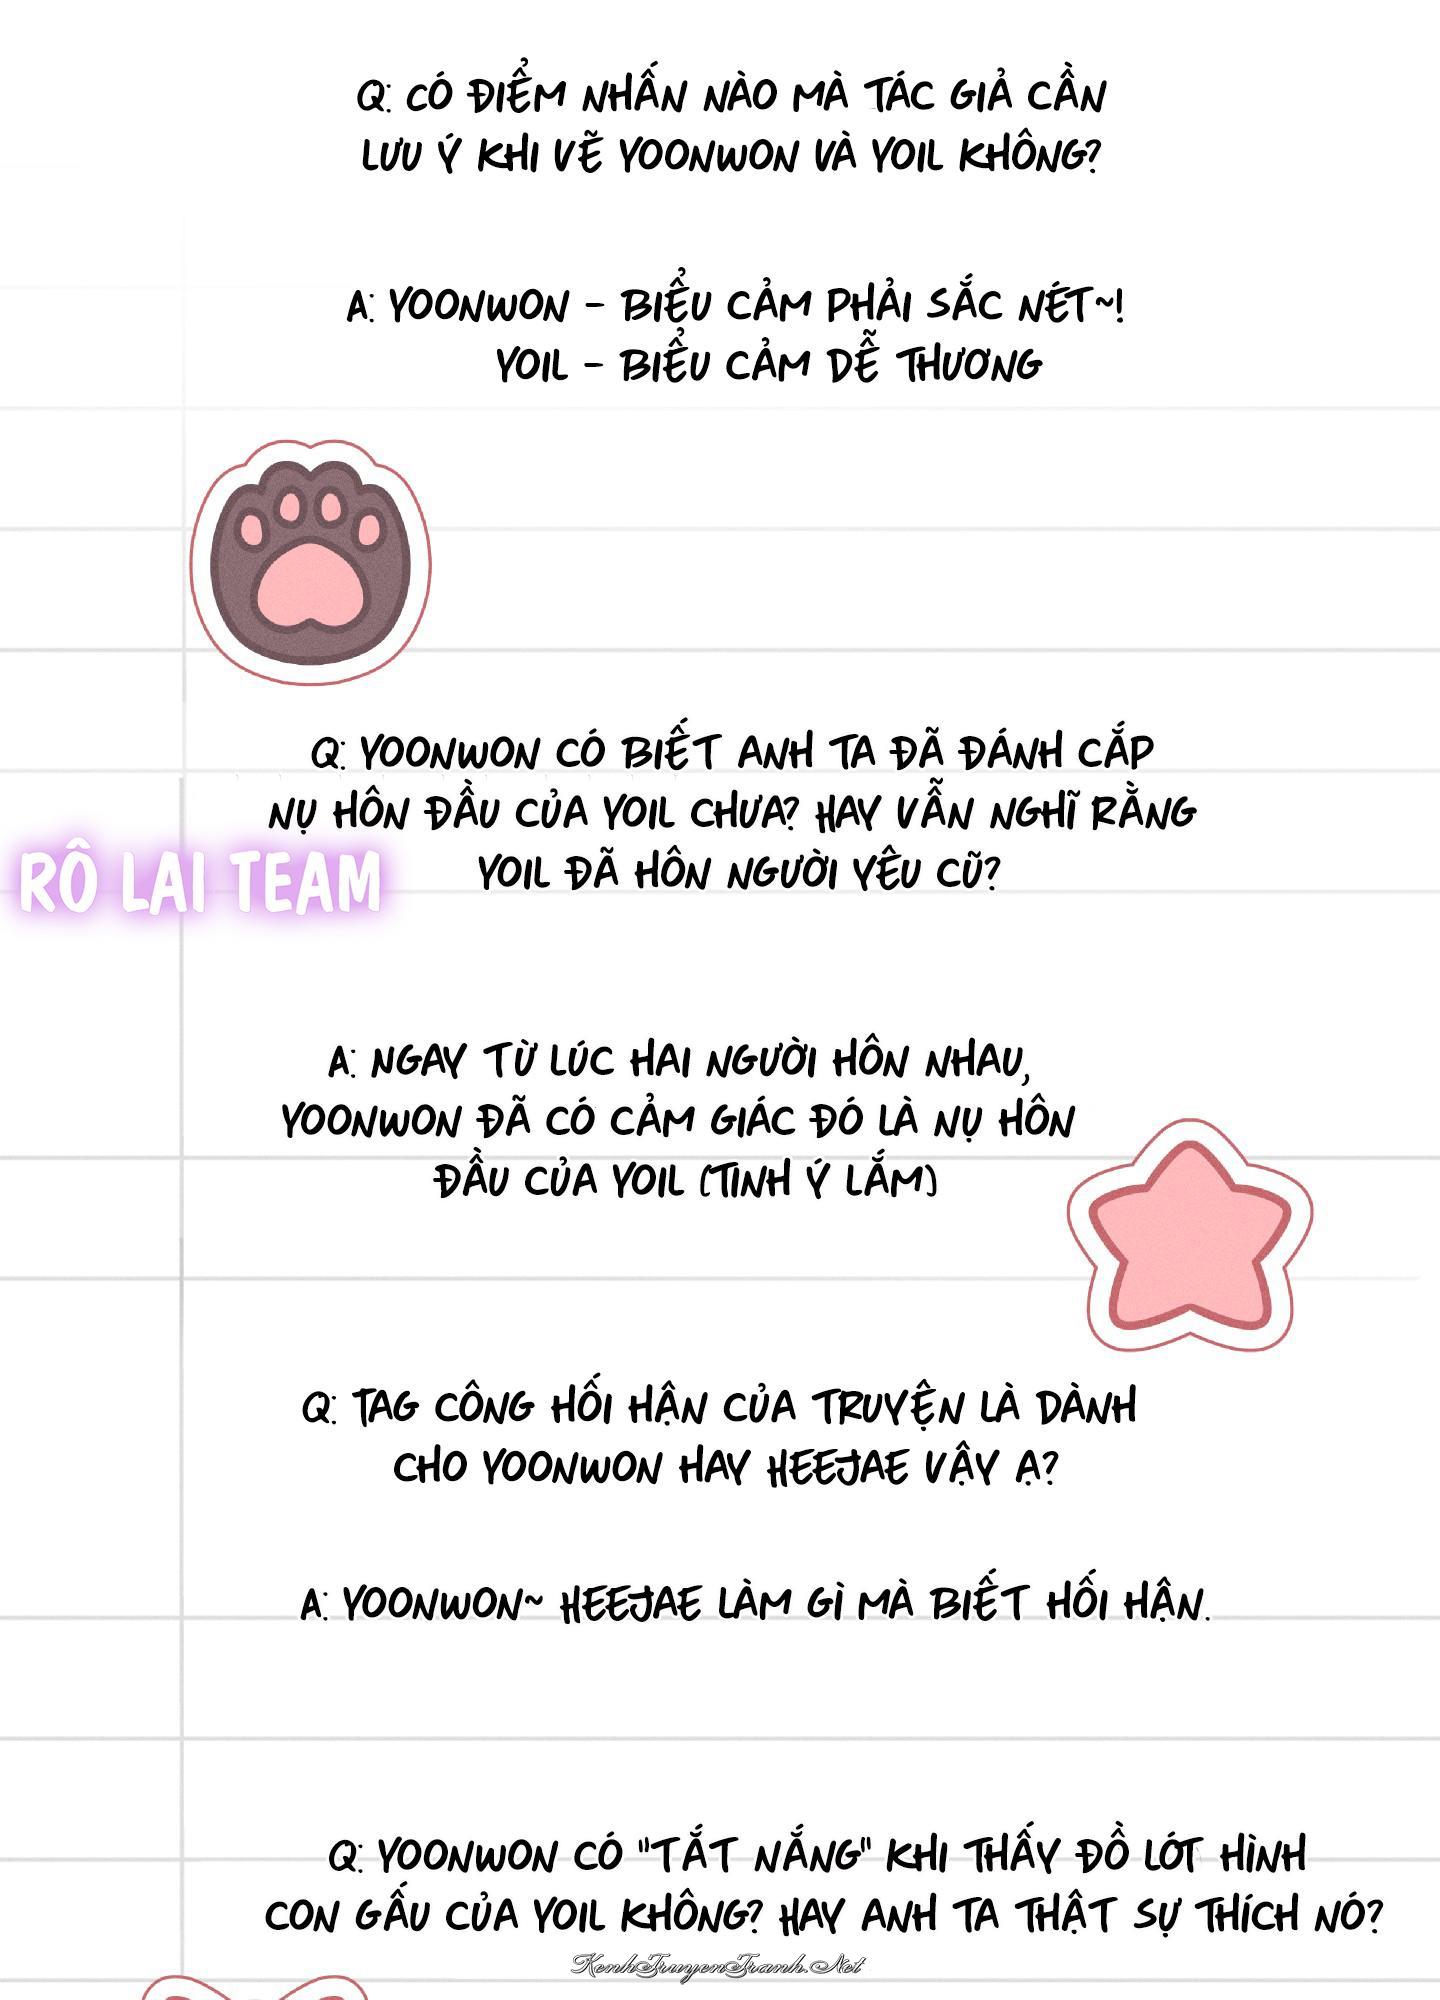 Q: CÓ ĐIỂM NHẤN NÀO MÀ TÁC GIẢ CẦN
LƯU Ý KHI VẼ YOONWON VÀ YOIL KHÔNG?
A: YOONWON - BIỂU CẢM PHẢI SẮC NÉT~!
YOIL - BIỂU CẢM DỄ THƯƠNG
Q: YOONWON CÓ BIẾT ANH TA ĐÃ ĐÁNH CẮP
NỤ HÔN ĐẦU CỦA YOIL CHƯA? HAY VẪN NGHĨ RẰNG
YOIL ĐÃ HÔN NGƯỜI YÊU CŨ?
RÔ LAI TEAM
A: NGAY TỪ LÚC HAI NGƯỜI HÔN NHAU,
YOONWON ĐÃ CÓ CẢM GIÁC ĐÓ LÀ NỤ HÔN
ĐẦU CỦA YOIL (TINH Ý LẮM)
Q: TAG CÔNG HỐI HẬN CỦA TRUYỆN LÀ DÀNH
CHO YOONWON HAY HEEJAE VẬY Ạ?
A: YOONWON~ HEEJAE LÀM GÌ MÀ BIẾT HỐI HẬN.
Q: YOONWON CÓ "TẮT NẮNG" KHI THẤY ĐỒ LÓT HÌNH
CON GẤU CỦA YOIL KHÔNG? HAY ANH TA THẬT SỰ THÍCH NÓ?
KenhTruyenTranh.Net